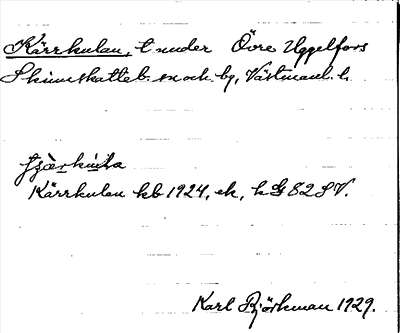 Kärrkulan, t. under Övre Uggelfors
Skinnskatteb. sn och bg, Västmanl. l.
Kärrkulan kb 1924, ek, hG 82 SV.
Karl Björkman 1929.